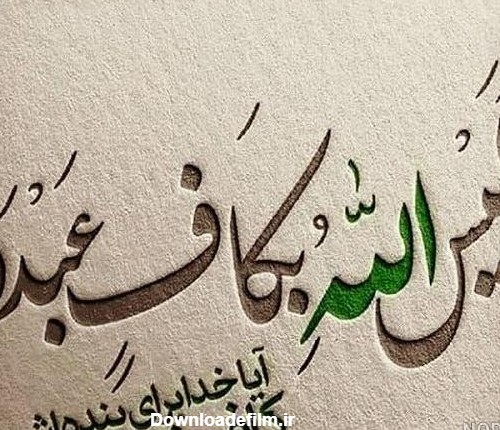 لَيْسَ اللّٰهُ بِكَافٍ عَبْدَهُ
آیا خدا برای بنده‌اش
Downloadefilm.ir